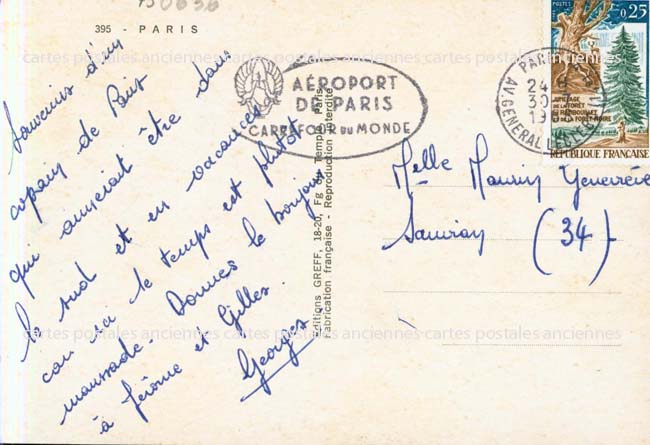 730636
395 - PARIS
Souvenirs d'un
copain de Paris
qui aimerait être dans
le sud et en vacances
car ici le temps est plutôt
maussade. Donnes le bonjour
à Jérôme et Gilles.
Georges
AÉROPORT
DE PARIS
CARREFOUR DU MONDE
Editions GREFF, 18-20, Fg du Temple, Paris
Fabrication française - Reproduction interdite
PARIS
24
30
19
AV. GENERAL LECLERC
POSTES
0,25
JUMELAGE
DE LA FORÊT
DE RAMBOUILLET
ET DE LA FORET-NOIRE
REPUBLIQUE FRANÇAISE
Melle Maurin Geneviève
(34)
cartes postales anciennes cartes postales anciennes cartes postales anciennes
cartes postales anciennes cartes postales anciennes cartes postales anciennes